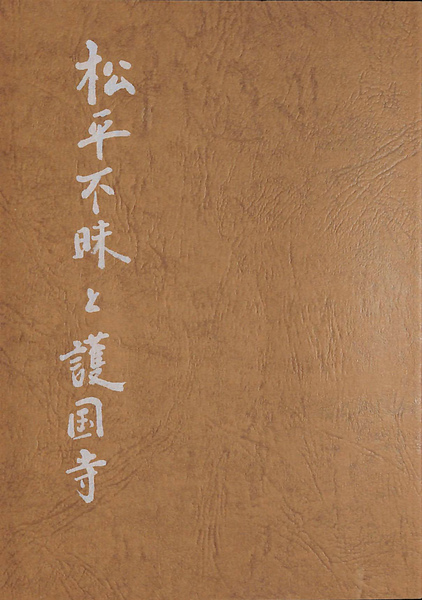 松平不昧と護国寺